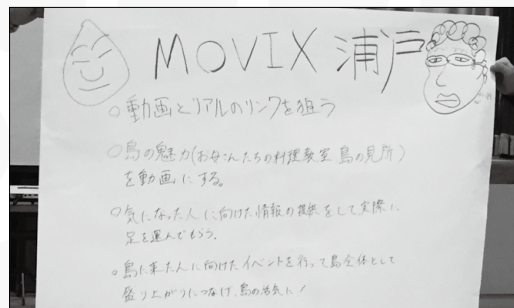 MOVIX 浦戸
○動画とリアルのリンクを狙う
○島の魅力(お母さんたちの料理教室 島の見所)
を動画にする。
○気になった人に向けた情報の提供をして実際に
足を運んでもらう。
○島に来た人に向けたイベントを行って島全体として
盛り上がりにつなげ、島の活気に!